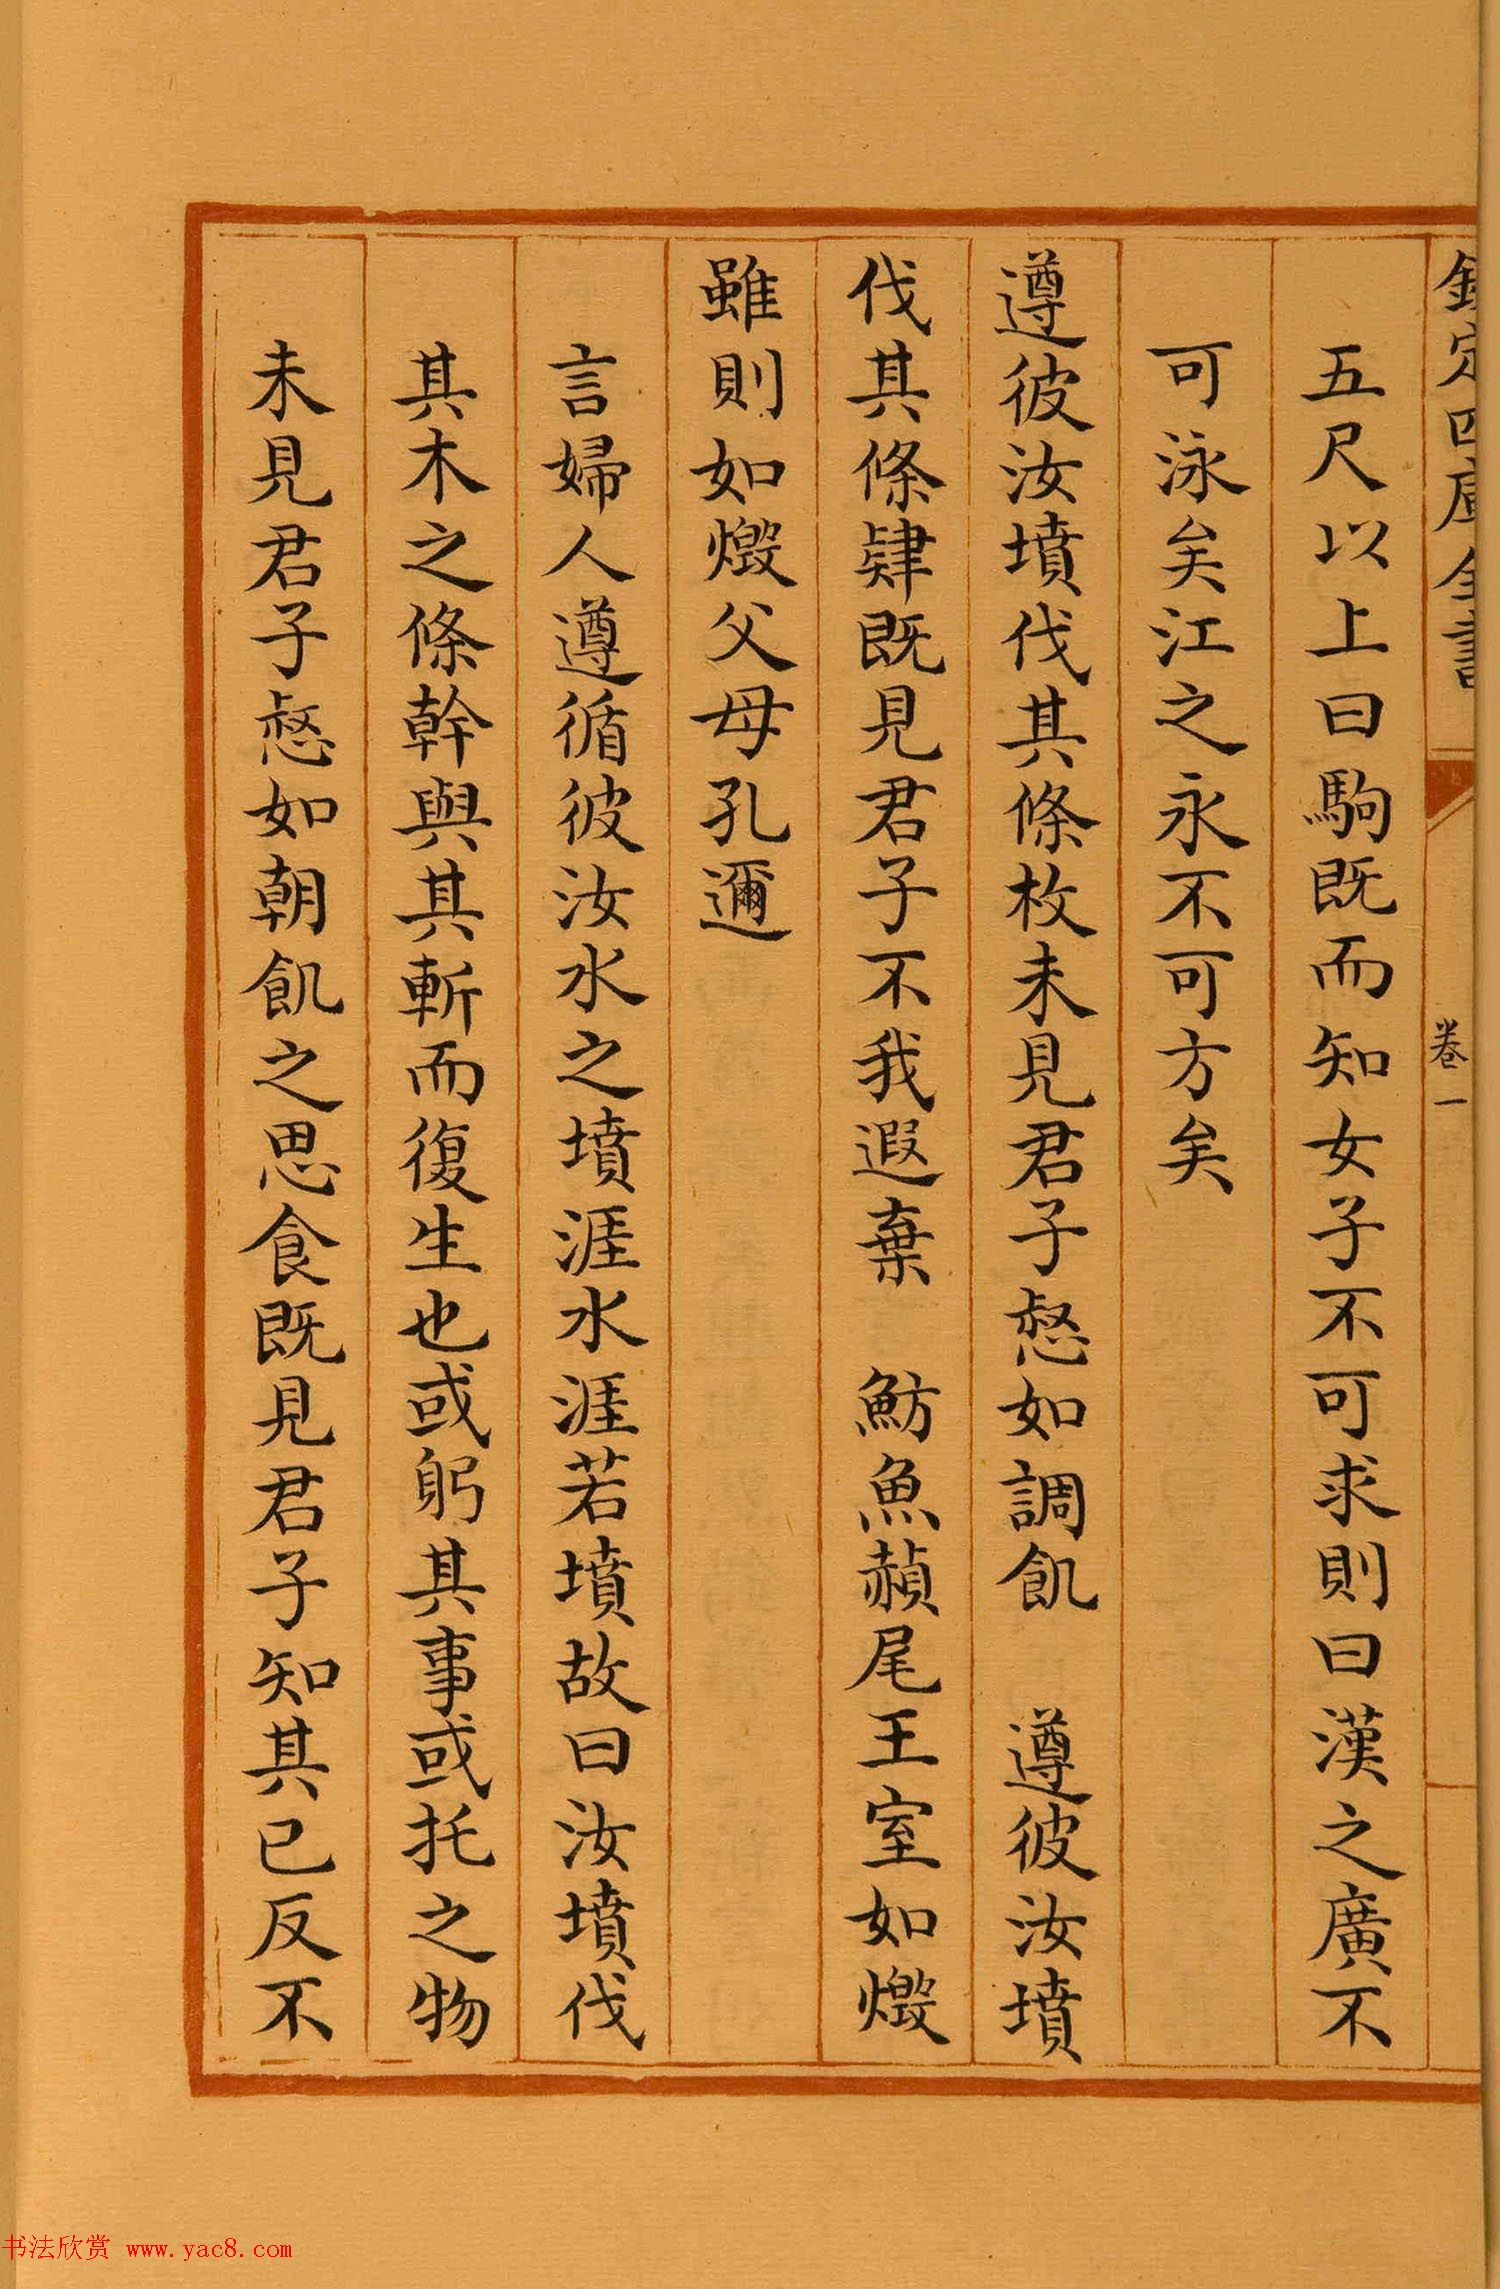 欽定四庫全書
卷一
五尺以上曰駒既而知女子不可求則曰漢之廣不
可泳矣江之永不可方矣
遵彼汝墳伐其條枚未見君子惄如調飢　遵彼汝墳
伐其條肄既見君子不我遐棄　魴魚赬尾王室如燬
雖則如燬父母孔邇
言婦人遵循彼汝水之墳涯水涯若墳故曰汝墳伐
其木之條幹與其斬而復生也或躬其事或托之物
未見君子惄如朝飢之思食既見君子知其已反不
书法欣赏 www.yac8.com